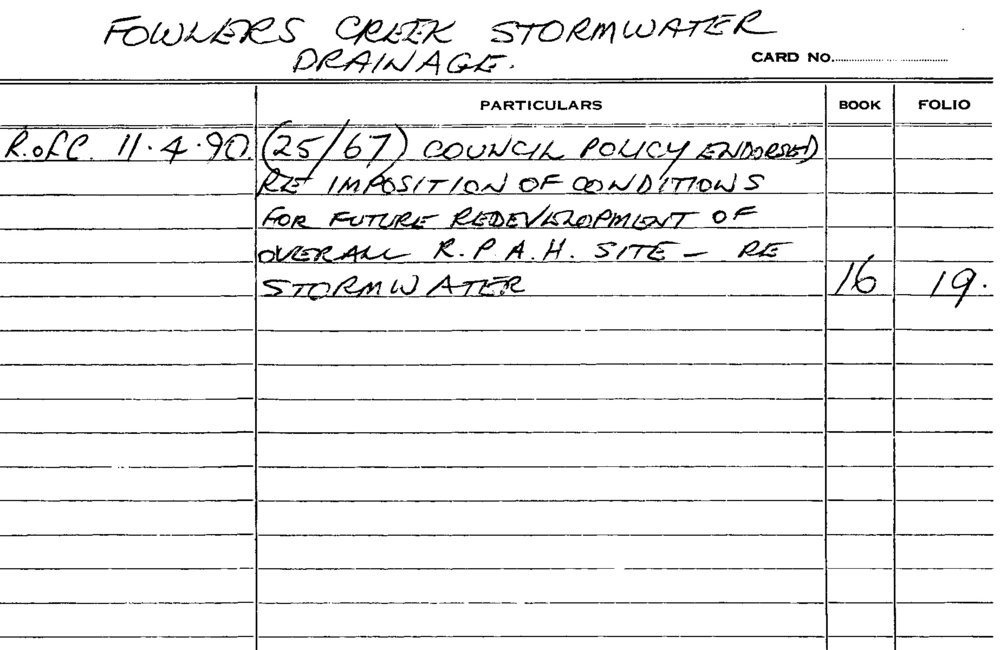 FOWLERS CREEK STORMWATER
DRAINAGE.
CARD No.
PARTICULARS BOOK FOLIO
R.ofC. 11.4.90. (25/67) COUNCIL POLICY ENDORSED
RE IMPOSITION OF CONDITIONS
FOR FUTURE REDEVELOPMENT OF
OVERALL R.P.A.H. SITE - RE
STORMWATER 16 19.